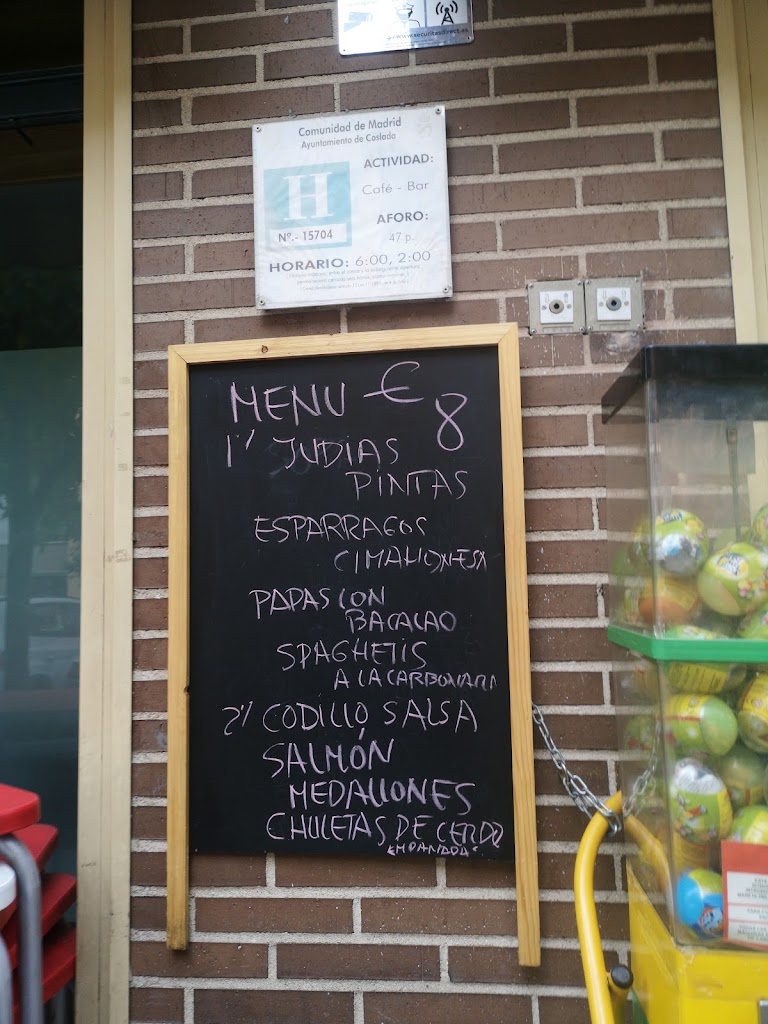 www.securitasdirect.es
Comunidad de Madrid
Ayuntamiento de Coslada
H
Nº.- 15704
ACTIVIDAD:
Café - Bar
AFORO:
47 p.
HORARIO: 6:00, 2:00
MENU €
8
1º/ JUDIAS
PINTAS
ESPARRAGOS
C/MAHONESA
PAPAS CON
BACALAO
SPAGHETIS
A LA CARBONARA
2º/ CODILLO SALSA
SALMÓN
MEDALLONES
CHULETAS DE CERDO
EMPANADA